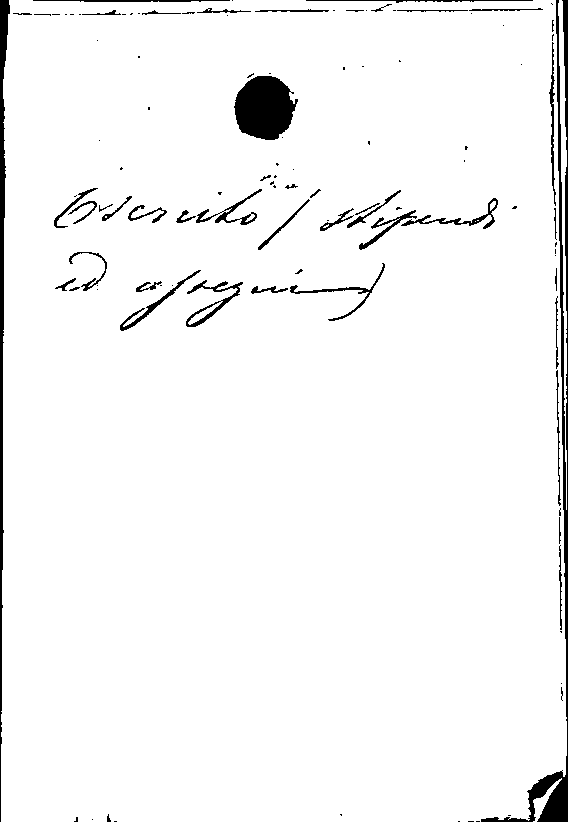 Esercito (stipendi
ed assegni)